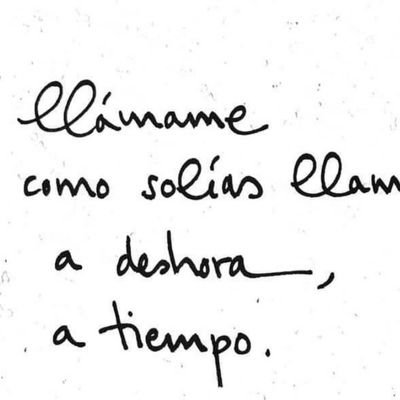 llámame
como solías llam
a deshora,
a tiempo.